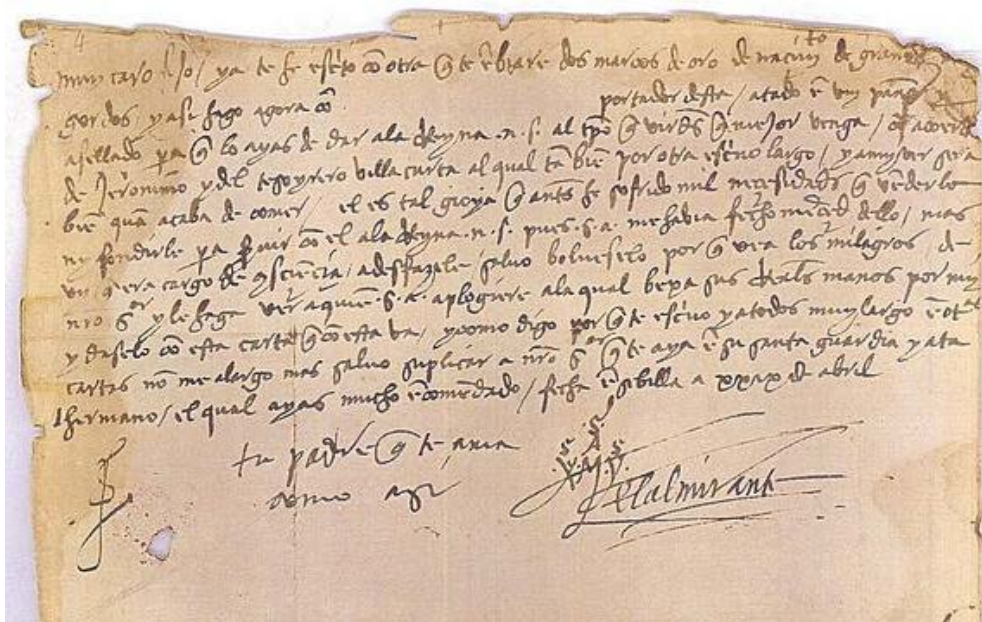 4
muy caro fijo / ya te he escrito con otra q te ēbiare dos marcos de oro de nacimⁱto de granos
gordos, y asi hago agora cō portador desta / atado ē un paño y
asellado pa q lo ayas de dar ala Reyna .n.s. al tpo q vierdes q mejor venga / cō acuerdo
de Jerónimo y del tesoyrero villacurta al qual tābiē por otra escrivo largo, y a my ver sera
biē quā acaba de comer / el es tal gioya q antes he sofrido mil necesidades q vēderlo
ny fondirle pa servir cō el ala Reyna .n.s. pues .s.a. me havia fecho merced dello / mas
q era cargo de cōsciencia / a desfazele, salvo bolverselo por q vea los milagros de
nro Sor y le haga ver a quiē .s.a. aplogiere ala qual besa sus Reales manos por my
y daselo cō esta carta q cō esta va, y como digo por q te escrivo y a todos muy largo ē otras
cartas nō me alargo mas salvo suplicar a nro Sor q te aya ē su santa guardia y a tu
hermano / el qual ayas mucho ēcomēdado / fecha ē sebilla a xxix de abril
tu padre q te ama
como a sí
.S.
.S. A .S.
X M Y
el almirante